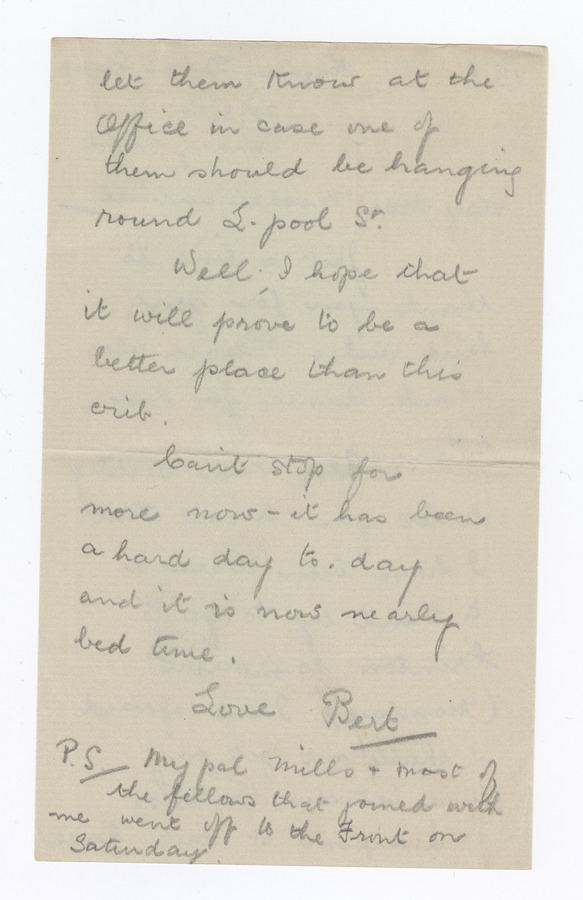 let them know at the
Office in case one of
them should be hanging
round L-pool St.
Well, I hope that
it will prove to be a
better place than this
crib.
Can't stop for
more now - it has been
a hard day to.day
and it is now nearly
bed time.
Love Bert
P.S. My pal Mills + most of
the fellows that joined with
me went off to the Front on
Saturday.